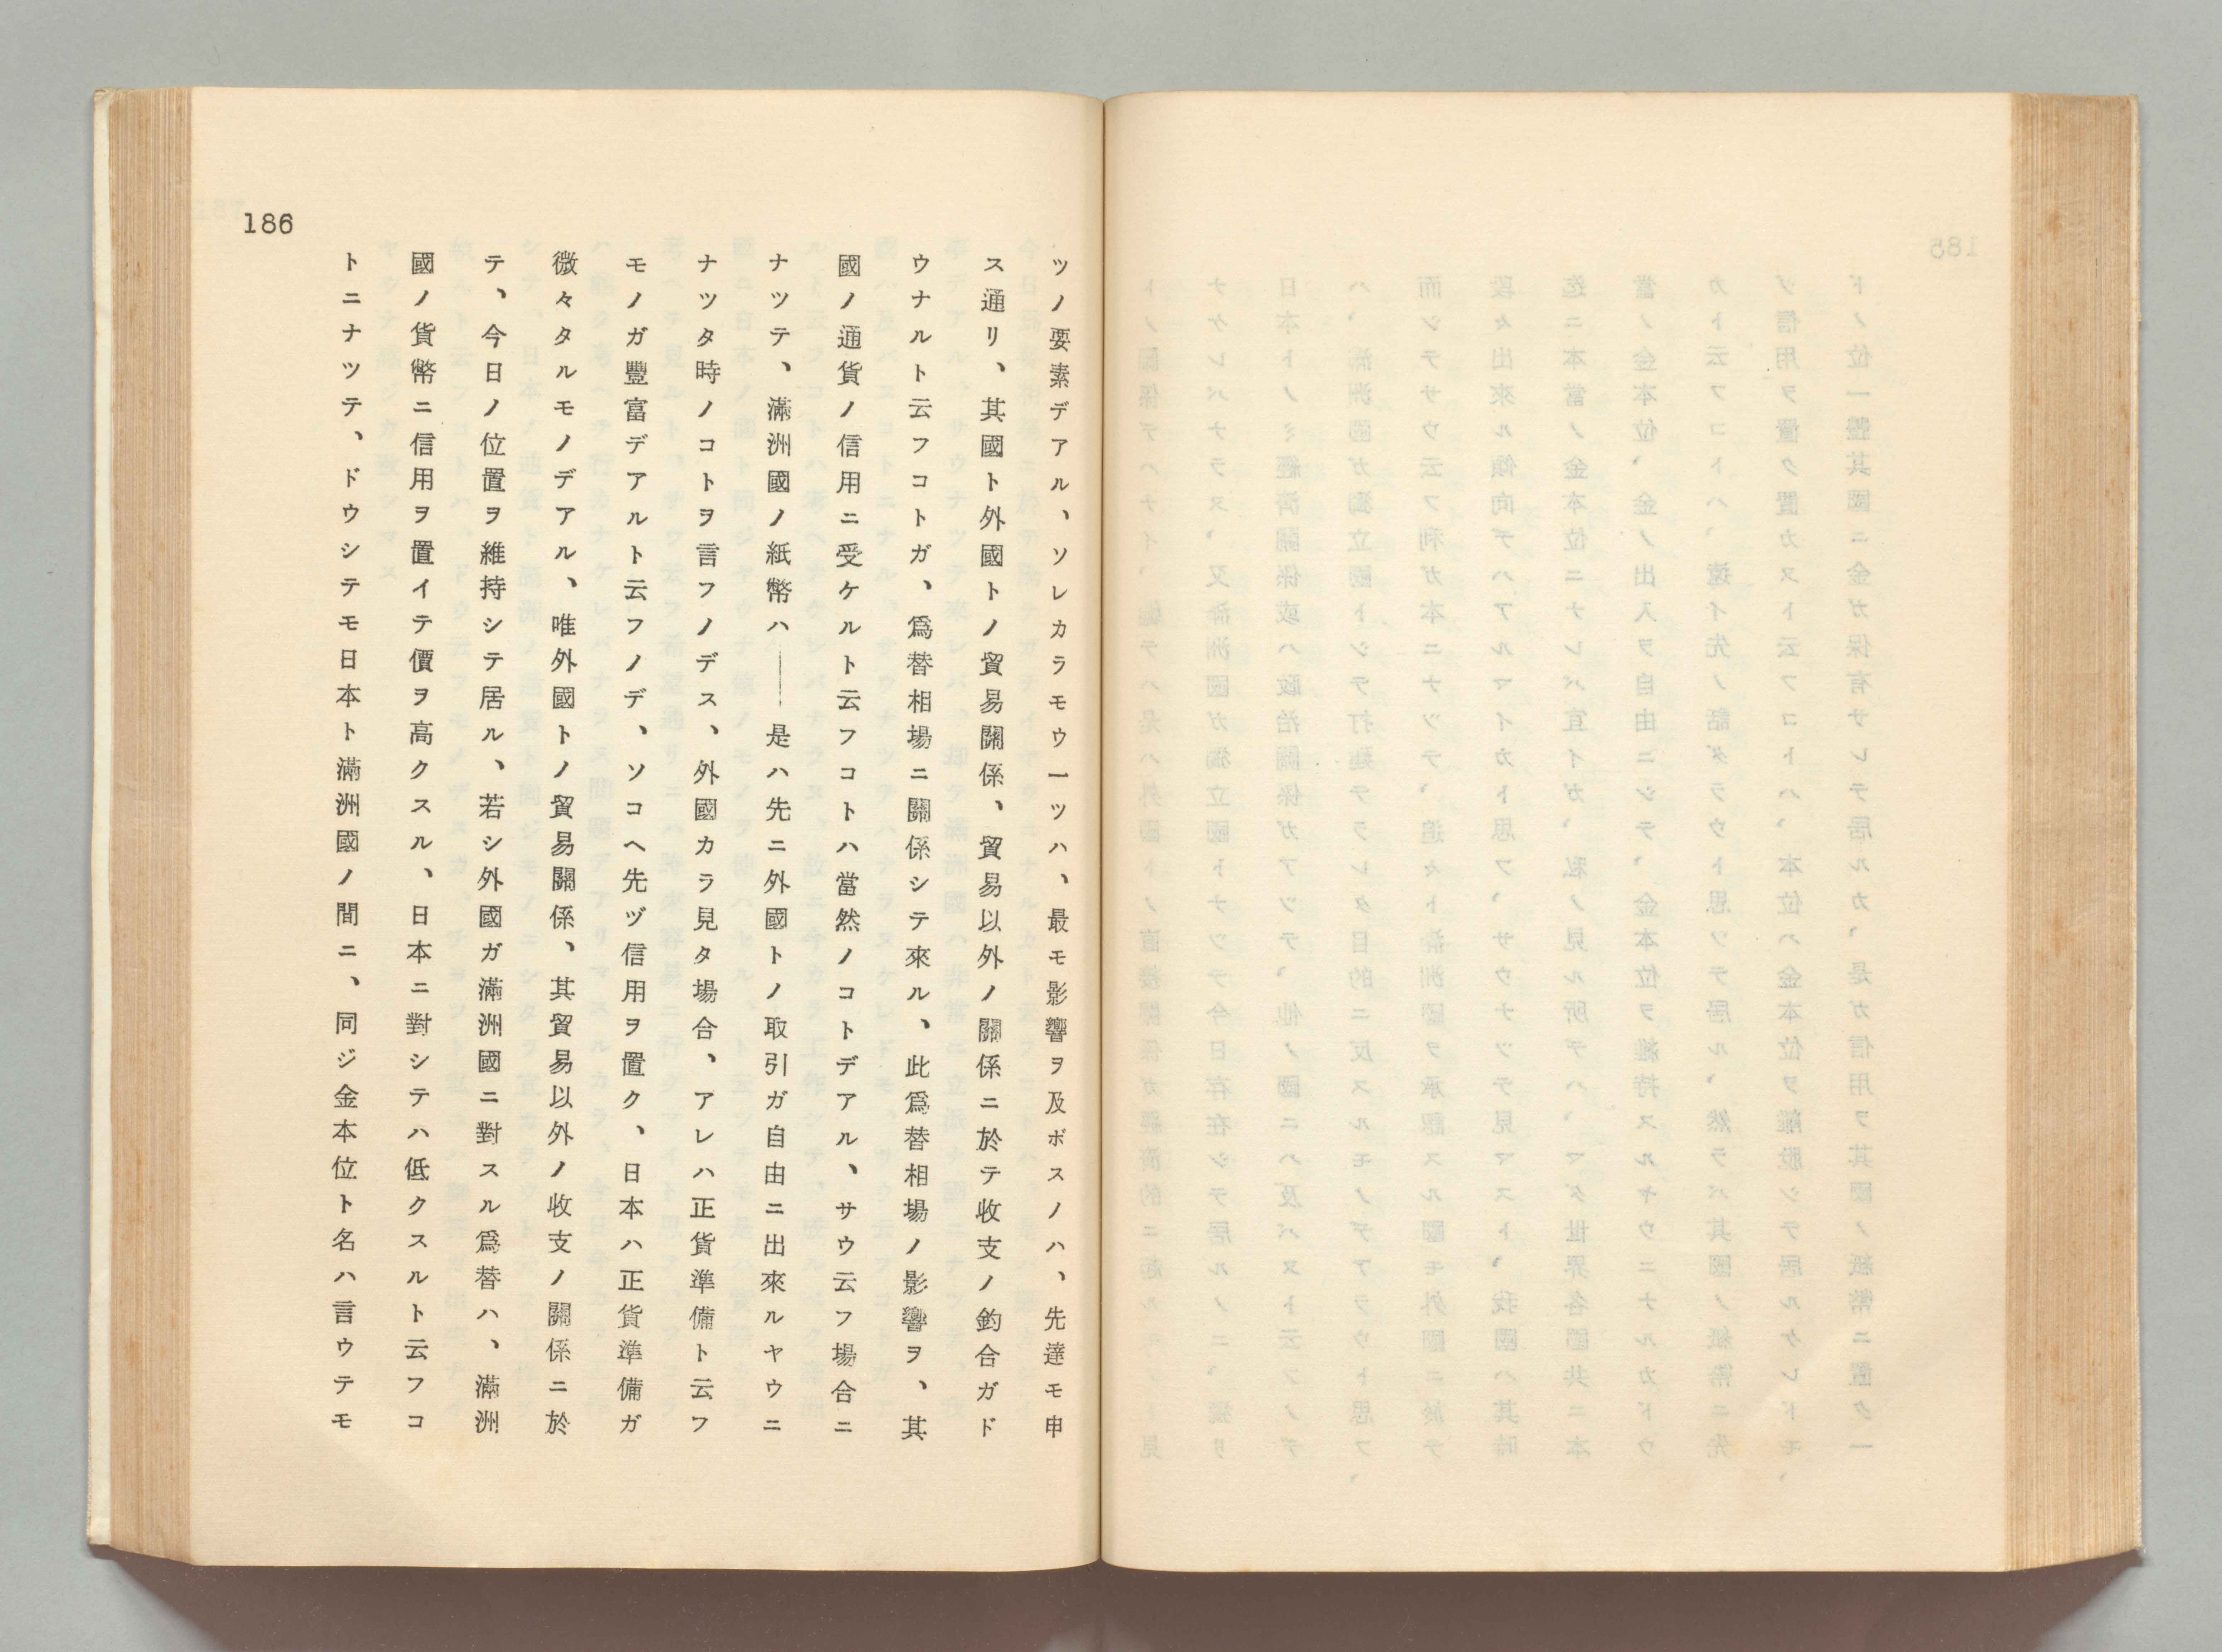 186
ツノ要素デアル、ソレカラモウ一ツハ、最モ影響ヲ及ボスノハ、先達モ申
ス通リ、其國ト外國トノ貿易關係、貿易以外ノ關係ニ於テ收支ノ釣合ガド
ウナルト云フコトガ、爲替相場ニ關係シテ來ル、此爲替相場ノ影響ヲ、其
國ノ通貨ノ信用ニ受ケルト云フコトハ當然ノコトデアル、サウ云フ場合ニ
ナツテ、滿洲國ノ紙幣ハ――是ハ先ニ外國トノ取引ガ自由ニ出來ルヤウニ
ナツタ時ノコトヲ言フノデス、外國カラ見タ場合、アレハ正貨準備ト云フ
モノガ豐富デアルト云フノデ、ソコヘ先ヅ信用ヲ置ク、日本ハ正貨準備ガ
微々タルモノデアル、唯外國トノ貿易關係、其貿易以外ノ收支ノ關係ニ於
テ、今日ノ位置ヲ維持シテ居ル、若シ外國ガ滿洲國ニ對スル爲替ハ、滿洲
國ノ貨幣ニ信用ヲ置イテ價ヲ高クスル、日本ニ對シテハ低クスルト云フコ
トニナツテ、ドウシテモ日本ト滿洲國ノ間ニ、同ジ金本位ト名ハ言ウテモ